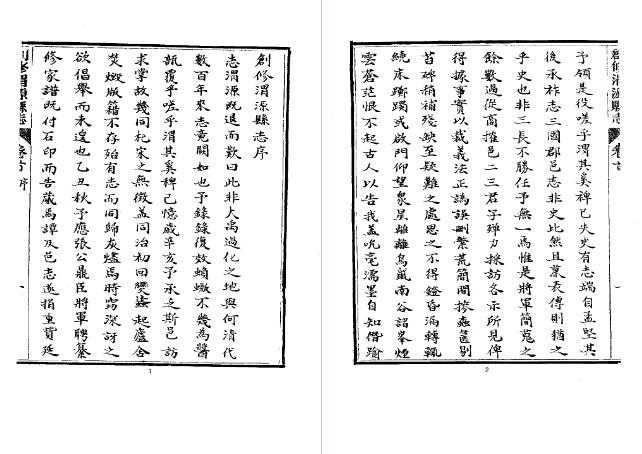 創修渭源縣志
卷首 序
創修渭源縣志序
志渭源既退而歎曰此非大禹過化之地與何清代
數百年來志竟闕如也予錄錄復效蝜蝂不幾為醬
瓿覆乎嗟乎渭其奚稗已憶歲辛亥予承乏斯邑訪
求掌故幾同杞宋之無徵蓋同治初回變益起廬舍
焚燬版籍不存殆有志而同歸灰燼焉時竊深訝之
欲倡舉而未遑也乙丑秋予應張公鼎臣將軍聘纂
修家譜既付石印而告蕆焉譚及邑志遂捐重貲延
1
創修渭源縣志
卷首
予領是役嗟乎渭其奚裨已夫史有志端自孟堅其
後承祚志三國郡邑志非史比然且稟表傳則猶之
乎史也非三長不勝任予無一焉惟是將軍簡蒐之
餘數過從商搉邑二三君子殫力採訪各示所見俾
得據事實以裁義法正譌誤刪繁荒簡間摻蟲篋剔
苔碑稍補殘缺至疑難之處思之不得鐙昏漏轉輒
繞床躑躅或啟門仰望衆星離離鳥嵐南谷諸峯煙
雲蒼茫恨不起古人以告我蓋吮毫濡墨自知僭踰
2